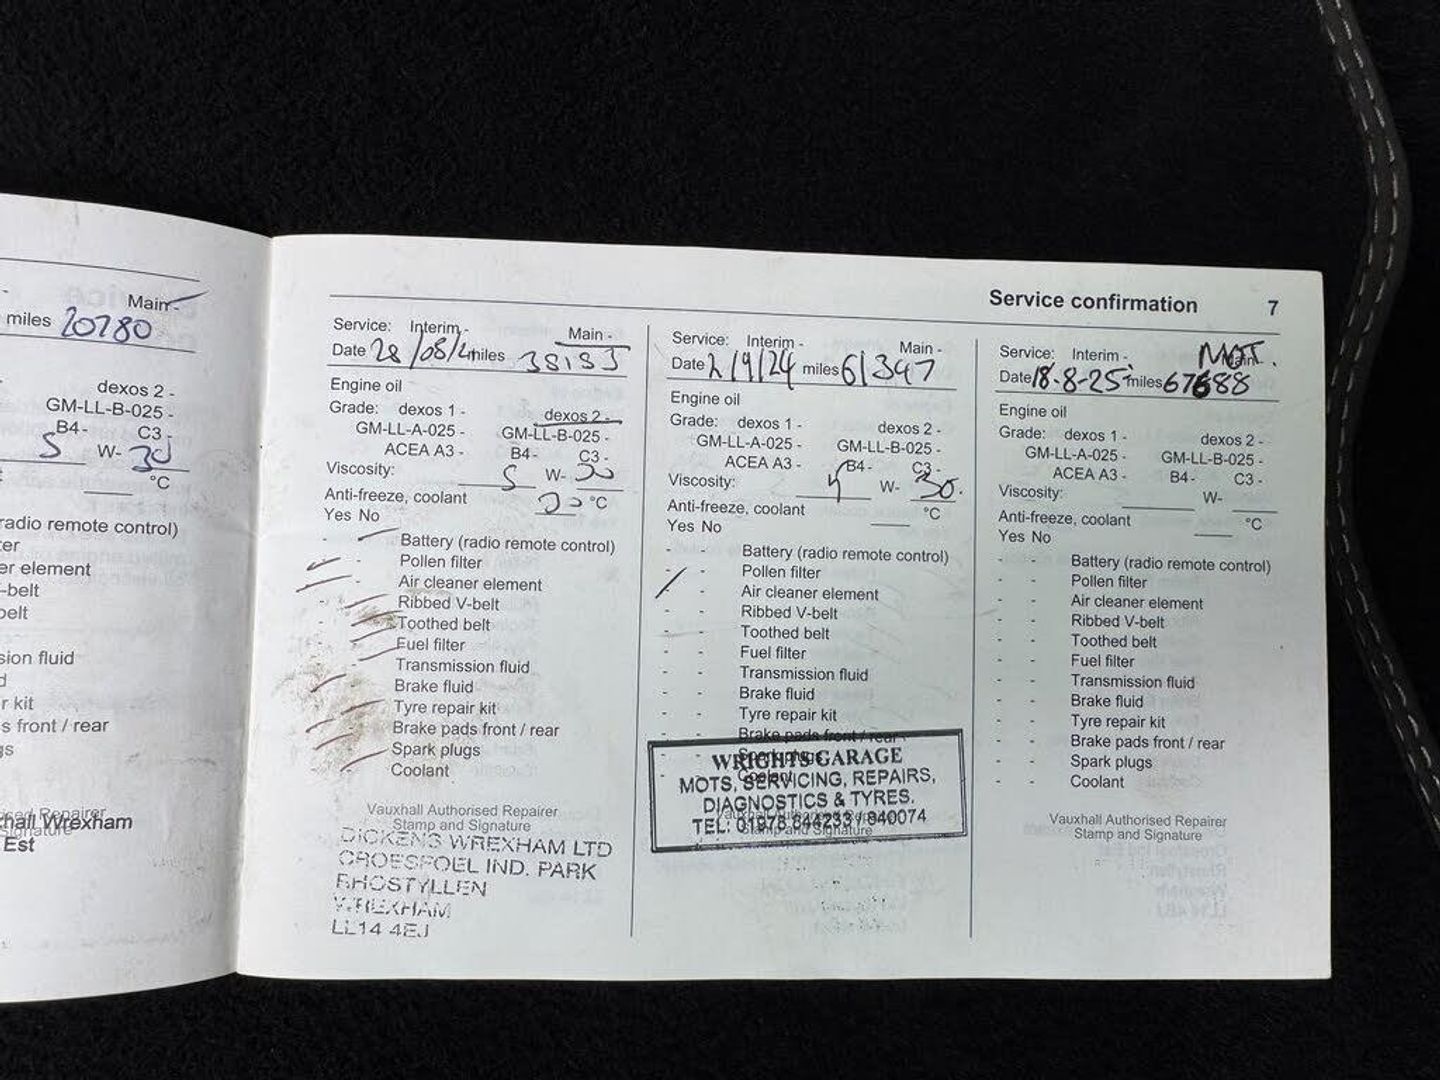 Main -
miles 20780
dexos 2 -
GM-LL-B-025 -
B4 - C3 -
5 W- 30
°C
radio remote control)
er element
-belt
belt
sion fluid
r kit
s front / rear
gs
hall Wrexham
Est
Service confirmation 7
Service: Interim - Main -
Date 28/08/ miles
Engine oil
Grade: dexos 1 - dexos 2 -
GM-LL-A-025 - GM-LL-B-025 -
ACEA A3 - B4 - C3 -
Viscosity: 5 W- 30
Anti-freeze, coolant °C
Yes No
- - Battery (radio remote control)
- - Pollen filter
- - Air cleaner element
- - Ribbed V-belt
- - Toothed belt
- - Fuel filter
- - Transmission fluid
- - Brake fluid
- - Tyre repair kit
- - Brake pads front / rear
- - Spark plugs
- - Coolant
Vauxhall Authorised Repairer
Stamp and Signature
DICKENS WREXHAM LTD
CROESFOEL IND. PARK
RHOSTYLLEN
WREXHAM
LL14 4EJ
Service: Interim - Main -
Date 2/9/24 miles 61347
Engine oil
Grade: dexos 1 - dexos 2 -
GM-LL-A-025 - GM-LL-B-025 -
ACEA A3 - B4 - C3 -
Viscosity: 5 W- 30.
Anti-freeze, coolant °C
Yes No
- - Battery (radio remote control)
- - Pollen filter
- - Air cleaner element
- - Ribbed V-belt
- - Toothed belt
- - Fuel filter
- - Transmission fluid
- - Brake fluid
- - Tyre repair kit
- - Brake pads front / rear
- - Spark plugs
- - Coolant
WRIGHTS GARAGE
MOTS, SERVICING, REPAIRS,
DIAGNOSTICS & TYRES.
TEL: 01978 844233 / 840074
Vauxhall Authorised Repairer
Stamp and Signature
Service: Interim - Main - MOT.
Date 18-8-25 miles 67688
Engine oil
Grade: dexos 1 - dexos 2 -
GM-LL-A-025 - GM-LL-B-025 -
ACEA A3 - B4 - C3 -
Viscosity: W-
Anti-freeze, coolant °C
Yes No
- - Battery (radio remote control)
- - Pollen filter
- - Air cleaner element
- - Ribbed V-belt
- - Toothed belt
- - Fuel filter
- - Transmission fluid
- - Brake fluid
- - Tyre repair kit
- - Brake pads front / rear
- - Spark plugs
- - Coolant
Vauxhall Authorised Repairer
Stamp and Signature